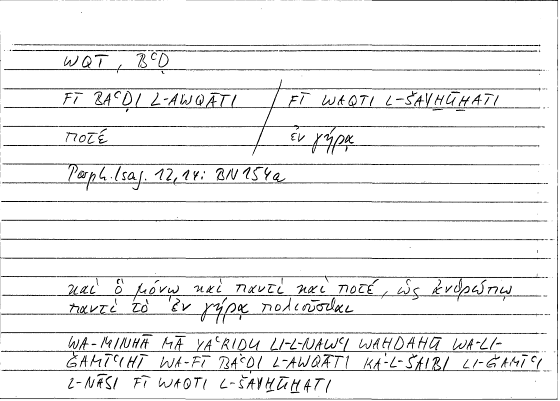 WQT, BʿḌ
FĪ BAʿḌI L-AWQĀTI / FĪ WAQTI L-ŠAYḪŪḪATI
ποτέ ἐν γήρᾳ
Porph. Isag. 12,14: BN 154a
καὶ ὃ μόνῳ καὶ παντὶ καὶ ποτέ, ὡς ἀνθρώπῳ
παντὶ τὸ ἐν γήρᾳ πολιοῦσθαι
WA-MINHĀ MĀ YAʿRIḌU LI-L-NAWʿI WAḤDAHŪ WA-LI-
ǦAMĪʿIHĪ WA-FĪ BAʿḌI L-AWQĀTI KA-L-ŠAIBI LI-ǦAMĪʿI
L-NĀSI FĪ WAQTI L-ŠAYḪŪḪATI